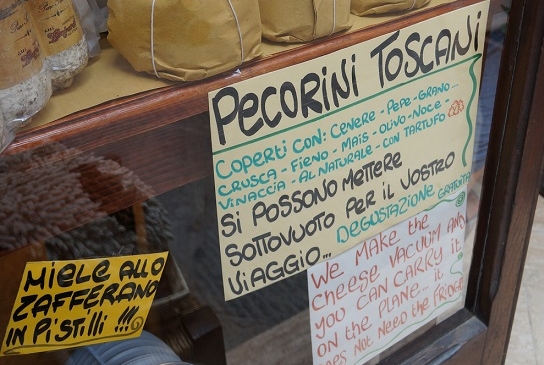 PECORINI TOSCANI
COPERTI CON: CENERE - PEPE - GRANO...
CRUSCA - FIENO - MAIS - OLIVO - NOCE -
VINACCIA - AL NATURALE - CON TARTUFO
SI POSSONO METTERE
SOTTOVUOTO PER IL VOSTRO
VIAGGIO... DEGUSTAZIONE GRATUITA
WE MAKE the
cheese VACUUM AND
YOU CAN CARRY it
ON the PLANE... it
DOES NOT NEED the FRIDGE
MIELE ALLO
ZAFFERANO
IN PiStilli !!!